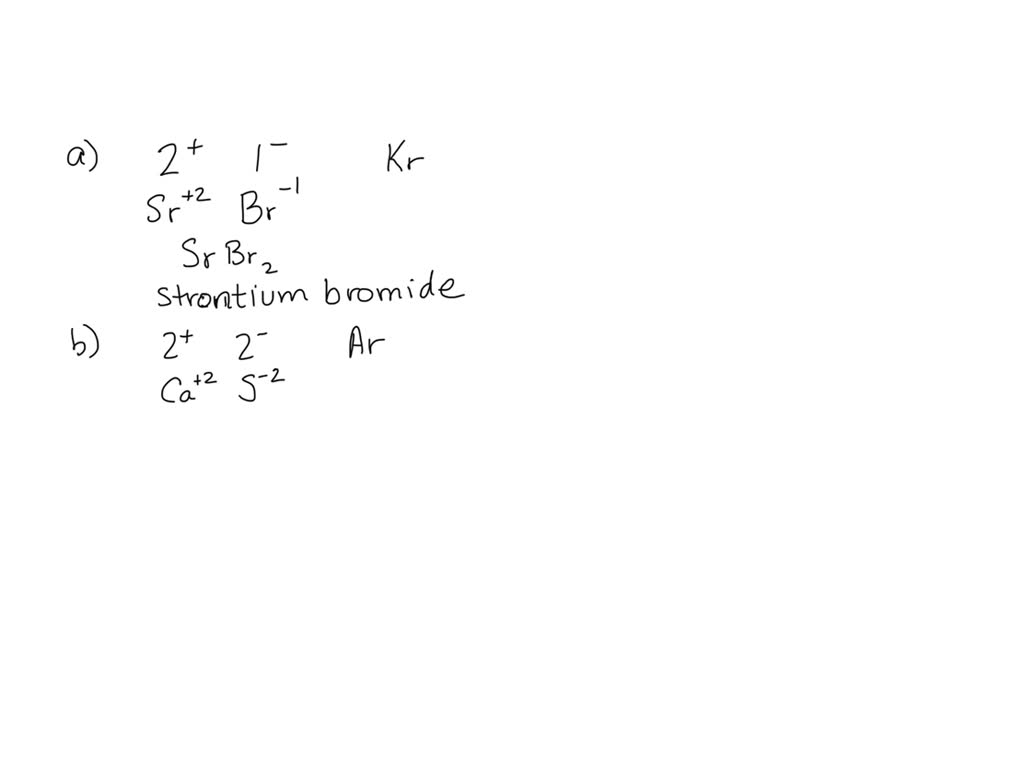 a) 2⁺ 1⁻ Kr
Sr⁺² Br⁻¹
SrBr₂
strontium bromide
b) 2⁺ 2⁻ Ar
Ca⁺² S⁻²